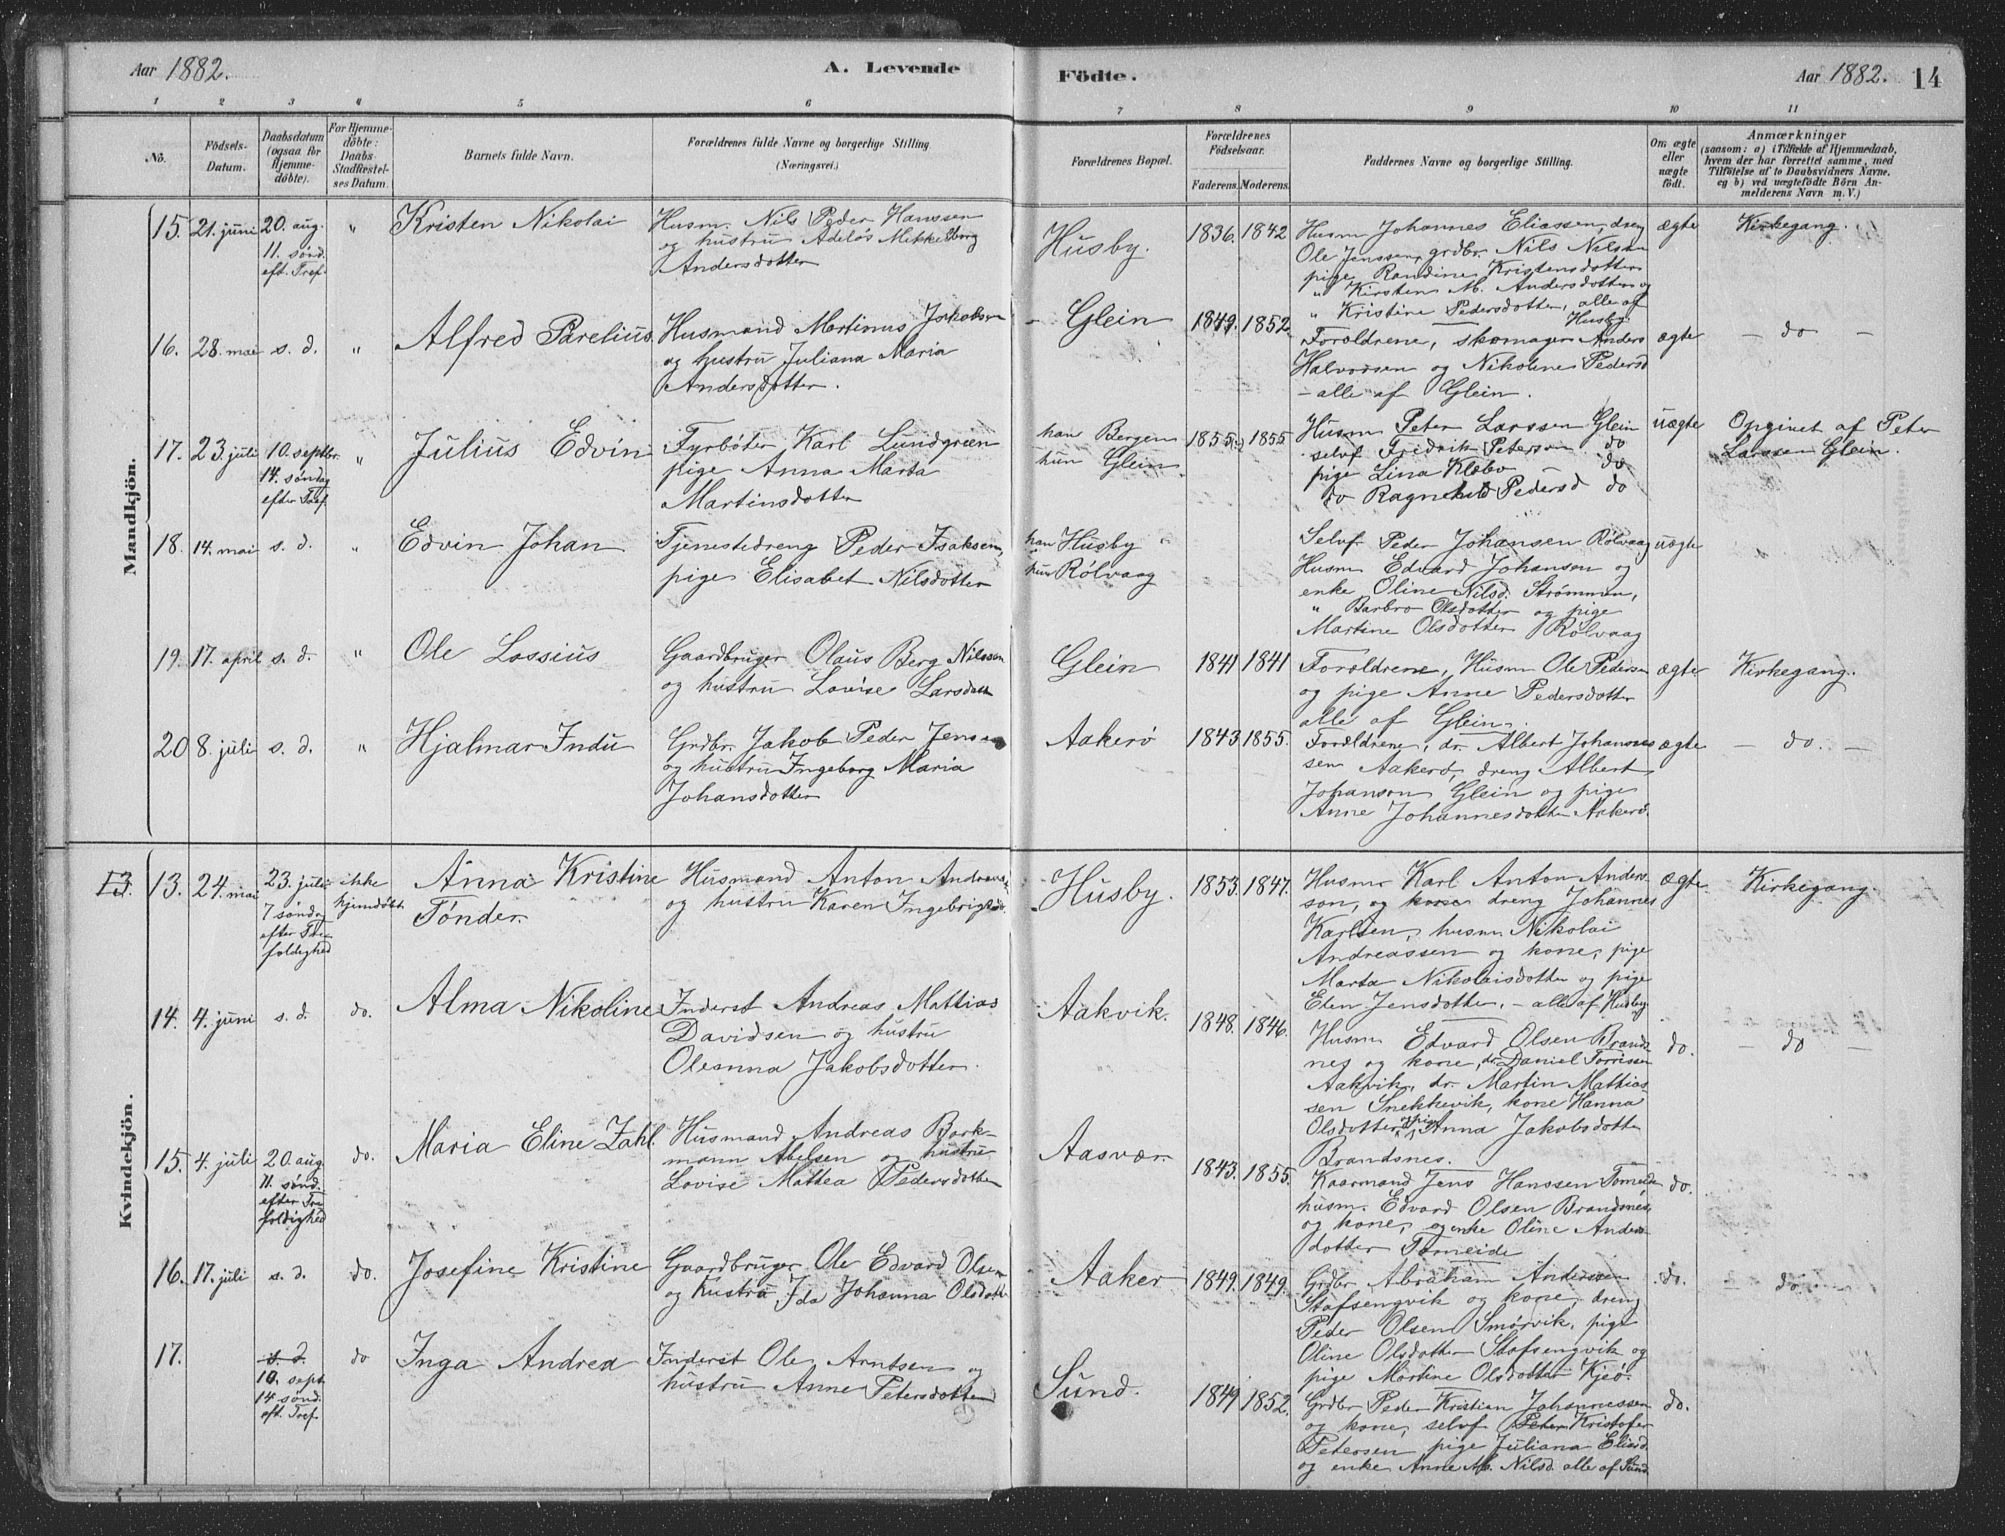 Aar 1882. A. Levende
Födte. Aar 1882. 14
1 2 3 4 5 6 7 8 9 10 11
No. Födsels-Datum. Daabsdatum (ogsaa for Hjemme-döbte). For Hjemme-döbte: Daabs-Stadfæstel-ses Datum. Barnets fulde Navn. Forældrenes fulde Navne og borgerlige Stilling. (Næringsvei.) Forældrenes Bopæl. Forældrenes Födselsaar. Faderens. Moderens. Faddernes Navne og borgerlige Stilling. Om ægte eller uægte födt. Anmærkninger (saasom: a) i Tilfælde af Hjemmedaab, hvem der har forrettet samme, med Tilföielse af to Daabsvidners Navne, og b) ved uægtefödte Börn An-melderens Navn m. V.)
Mandkjön.
15. 21. juni 20. aug. " Kristen Nikolai Husm. Nils Peder Hanssen
11. sønd. og hustru Adelös Mikkelborg
eft. Tref. Andersdotter
Husby. 1836. 1842 Husm Johannes Eliassen, dreng ægte Kirkegang.
Ole Jenssen, grdbr. Nils Nilsen
pige Randine Kristensdotter
" Kirsten M. Andersdotter og
" Kristine Pedersdotter, alle af
Husby.
16. 28. mai s. d. " Alfred Parelius Husmand Martinus Jakobsen
og hustru Juliana Maria
Andersdotter.
Glein 1849. 1852. Foröldrene, skomager Anders ægte - do -
Halvorsen og Nikoline Pedersd
- alle af Glein.
17. 23. juli 10. septbr. " Julius Edvin Fyrböter Karl Lundgreen
14. søndag pige Anna Marta
efter Tref. Martinsdotter
han Bergen 1855. 1855 Husm Peter Larssen Glein uægte Opgivet af Peter
hun Glein selvf Fredrik Peterson do Larssen Glein.
pige Lina Klæbo - do
do Ragnehild Pedersd do
18. 14. mai s. d. " Edvin Johan Tjenestedreng Peder Isaksen,
pige Elisabet Nilsdotter
han Husby Selvf. Peder Johansen Rölvaag uægte
hun Rölvaag Husm Edvard Johansen og
enke Oline Nilsd. Strømmen,
" Barbro Olsdotter og pige
Martine Olsdotter Rölvaag
19. 17. april s. d. " Ole Lossius Gaardbruger Olaus Berg Nilssen
og hustru Lovise Larsdott
Glein 1841 1841 Foröldrene, Husm Ole Pedersen ægte Kirkegang.
og pige Anne Pedersdotter
alle af Glein.
20 8. juli s. d. " Hjalmar Indu Grdbr. Jakob Peder Jensen
og hustru Ingeborg Maria
Johansdotter
Aakerö 1843 1855. Forældrene, dr. Albert Johannes ægte - do. -
sen Aakerö, dreng Albert
Johanson Glein og pige
Anne Johannesdotter Aakerö.
Kvindekjön.
13. 13. 24. mai 23. juli ikke Anna Kristine Husmand Anton Andreas
7 sönd. hjemdøbt. Tönder. og hustru Karen Ingebrigtsd.
efter Tre-
foldighed
Husby. 1853. 1847. Husm Karl Anton Anders- ægte Kirkegang.
son, og kone dreng Johannes
Karlsen, husm Nikolai
Andreassen og kone, pige
Marta Nikolaisdotter og pige
Elen Jensdotter, - alle af Husby
14. 4. juni s. d. do. Alma Nikoline Inderst Andreas Mattias
Davidsen og hustru
Oleanna Jakobsdotter.
Aakvik. 1848. 1846. Husm Edvard Olsen Brands do. - do -
nes og kone, dr Daniel Torrissen
Aakvik, dr. Martin Mattias-
sen Snekkevik, kone Hanna
Olsdotter og pige Anna Jakobsdotter
Brandsnes.
15. 4. juli 20. aug. do. Maria Eline Zahl Husmand Andreas Bork-
11. sönd. mann Abelsen og hustru
efter Tre Lovise Mattea Pedersdotter
foldighed
Aasvær. 1843. 1855. Kaarmand Jens Hanssen Tömeide do.
husm. Edvard Olsen Brandsnes,
og kone, og enke Oline Anders
dotter Tömeide
16. 17. juli s. d. do. Josefine Kristine Gaardbruger Ole Edvard Olsen
og hustru Ida Johanna Olsdotter
Aaker 1849. 1849. Grdbr Abraham Anderssen do. do.
Stafsengvik og kone, dreng
Peder Olsen Smörvik, pige
Oline Olsdotter Stafsengvik og
pige Martine Olsdotter Kjeö.
17. s. d. do Inga Andrea Inderst Ole Arntsen og
10. sept. hustru Anne Petersdotter
14 sönd.
eft. Tref.
Sund. 1849 1852. Grdbr Peder Kristian Johannessen do.
og kone, selvf Peter Kristofer
Petersen, pige Juliana Eliasd
og enke Anne M. Nilsd. alle af Sund